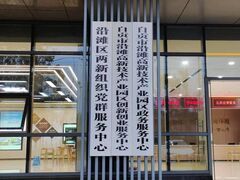 沿滩区两新组织党群服务中心
自贡市沿滩高新技术产业园区创新创业服务中心
自贡市沿滩高新技术产业园区政务服务中心